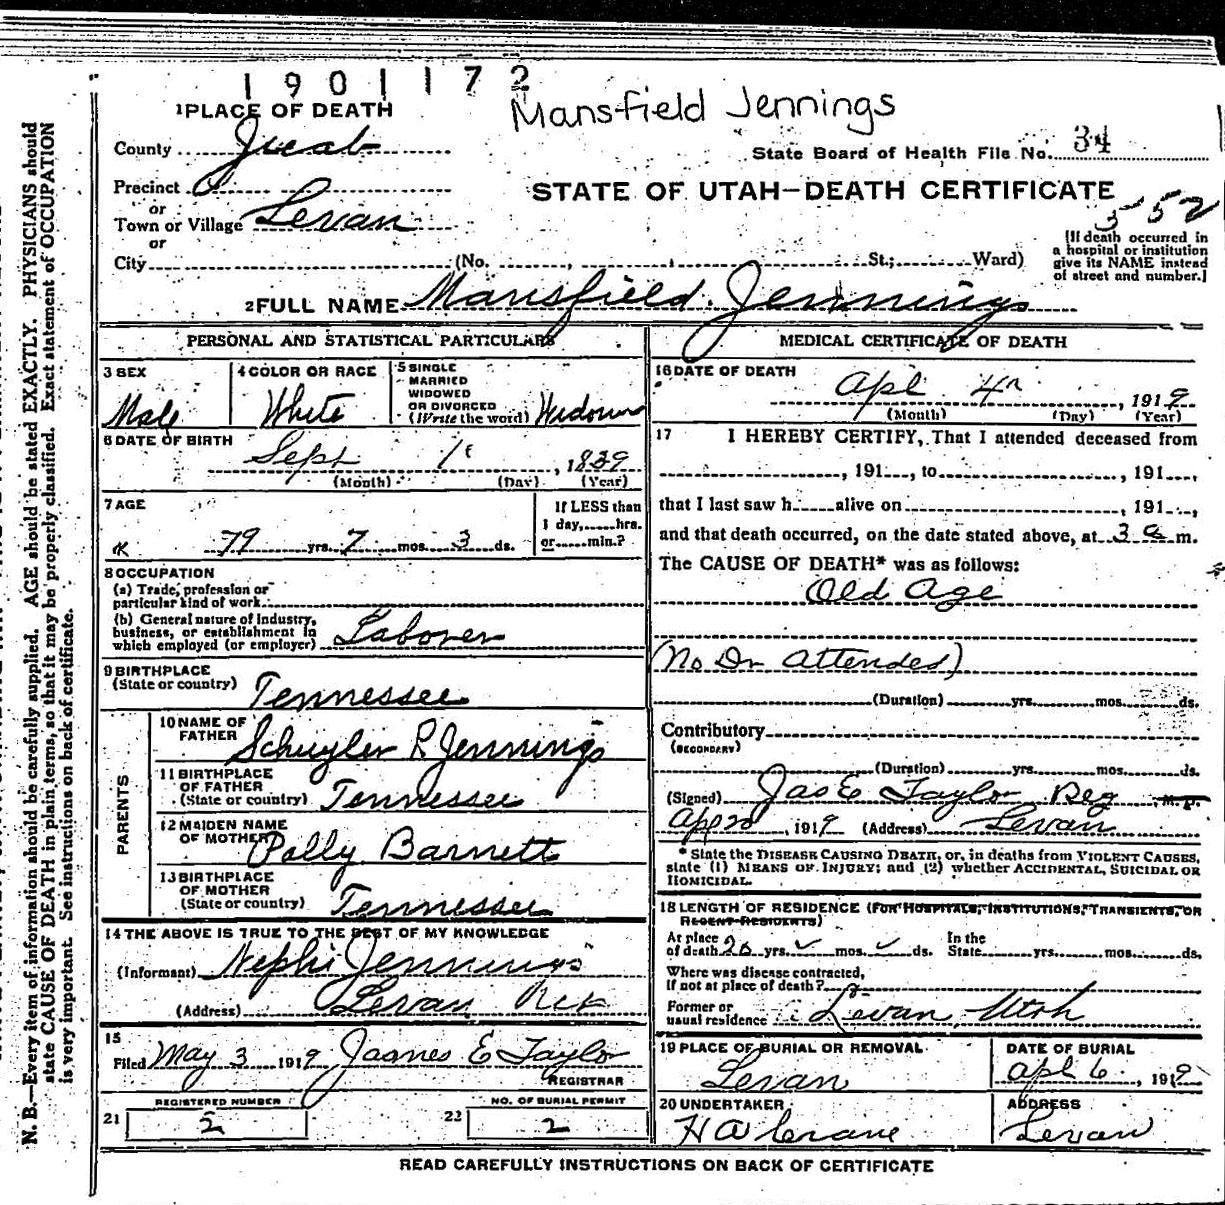 1901172
Mansfield Jennings
1 PLACE OF DEATH
County Juab
State Board of Health File No. 34
Precinct
or
Town or Village Levan
or
City (No. , St.; Ward)
STATE OF UTAH—DEATH CERTIFICATE
552
[If death occurred in
a hospital or institution
give its NAME instead
of street and number.]
2 FULL NAME Mansfield Jennings
PERSONAL AND STATISTICAL PARTICULARS
3 SEX
Male
4 COLOR OR RACE
White
5 SINGLE
MARRIED
WIDOWED
OR DIVORCED
(Write the word) Widower
6 DATE OF BIRTH
Sept 1st, 1839
(Month) (Day) (Year)
7 AGE
79 yrs. 7 mos. 3 ds.
If LESS than
1 day, hrs.
or min.?
8 OCCUPATION
(a) Trade, profession or
particular kind of work
(b) General nature of industry,
business, or establishment in
which employed (or employer) Laborer
9 BIRTHPLACE
(State or country) Tennessee
PARENTS
10 NAME OF
FATHER Schuyler R Jennings
11 BIRTHPLACE
OF FATHER
(State or country) Tennessee
12 MAIDEN NAME
OF MOTHER Polly Barnett
13 BIRTHPLACE
OF MOTHER
(State or country) Tennessee
14 THE ABOVE IS TRUE TO THE BEST OF MY KNOWLEDGE
(Informant) Nephi Jennings
(Address) Levan
15
Filed May 3 1919 James E Taylor
REGISTRAR
REGISTERED NUMBER
21 2
NO. OF BURIAL PERMIT
22 2
MEDICAL CERTIFICATE OF DEATH
16 DATE OF DEATH
Apl 4th, 1919
(Month) (Day) (Year)
17 I HEREBY CERTIFY, That I attended deceased from
, 191 , to , 191 ,
that I last saw h alive on , 191 ,
and that death occurred, on the date stated above, at 3 a m.
The CAUSE OF DEATH* was as follows:
Old Age
(No Dr Attended)
(Duration) yrs. mos. ds.
Contributory
(SECONDARY)
(Duration) yrs. mos. ds.
(Signed) Jas E Taylor Reg, M. D.
Apr 20, 1919 (Address) Levan
* State the DISEASE CAUSING DEATH, or, in deaths from VIOLENT CAUSES,
state (1) MEANS OF INJURY; and (2) whether ACCIDENTAL, SUICIDAL OR
HOMICIDAL.
18 LENGTH OF RESIDENCE (FOR HOSPITALS, INSTITUTIONS, TRANSIENTS, OR
RECENT RESIDENTS)
At place
of death 20 yrs. mos. ds.
In the
State yrs. mos. ds.
Where was disease contracted,
If not at place of death?
Former or
usual residence Levan, Utah
19 PLACE OF BURIAL OR REMOVAL
Levan
DATE OF BURIAL
Apl 6, 1919
20 UNDERTAKER
H A Crane
ADDRESS
Levan
READ CAREFULLY INSTRUCTIONS ON BACK OF CERTIFICATE
N. B.—Every item of information should be carefully supplied. AGE should be stated EXACTLY. PHYSICIANS should
state CAUSE OF DEATH in plain terms, so that it may be properly classified. Exact statement of OCCUPATION
is very important. See instructions on back of certificate.